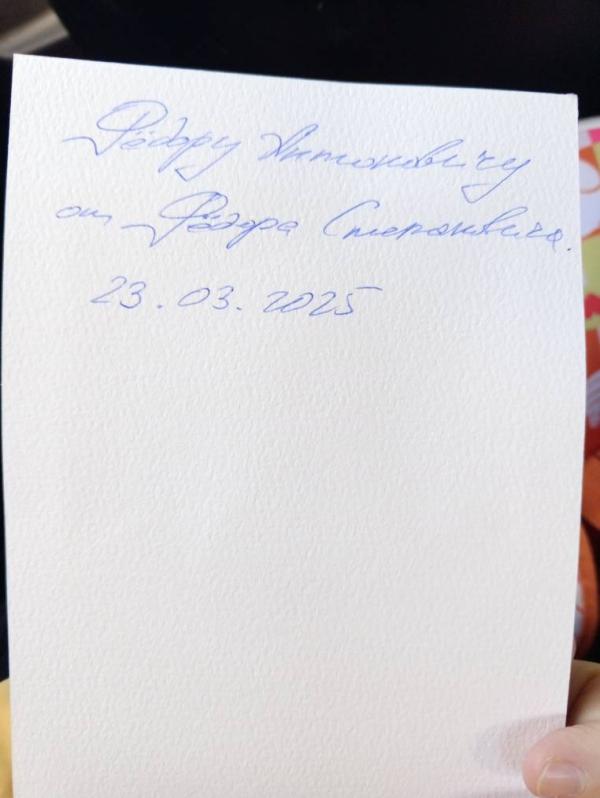 Фёдору Антоновичу
от Фёдора Степановича.
23.03.2025